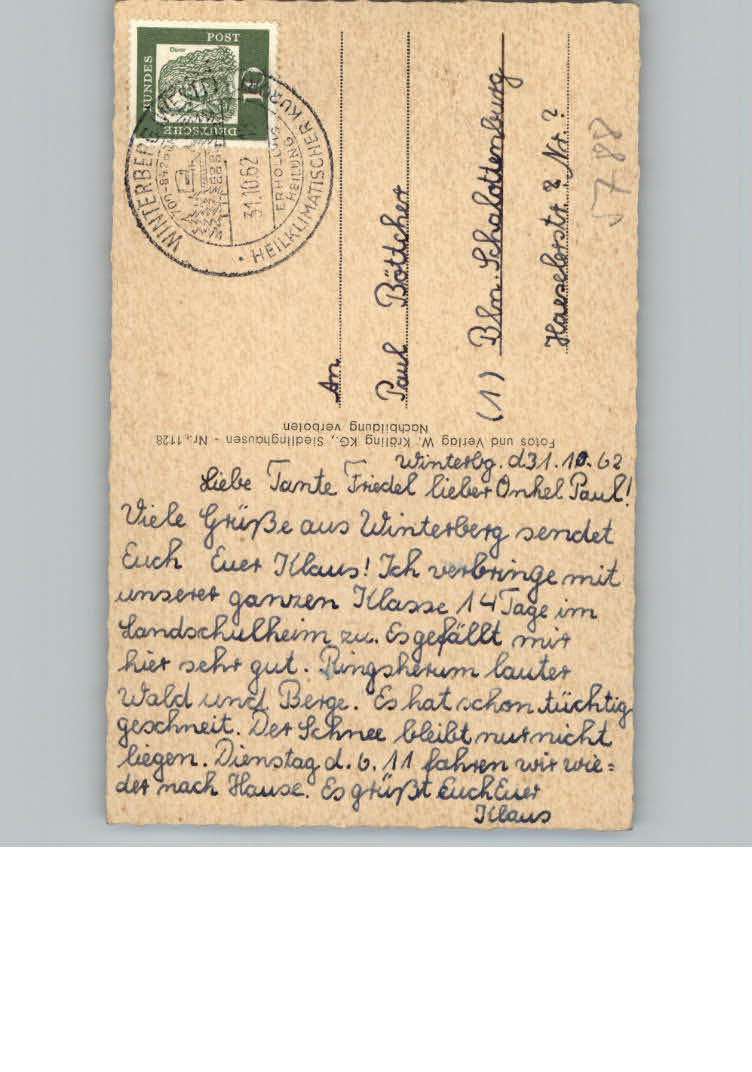 DEUTSCHE
BUNDES
POST
Dürer
10
WINTERBERG
700-842
31.10.62
ERHOLUNG
HEILUNG
• HEILKLIMATISCHER KUR
5788
An
Paul Böttcher
(1) Bln. Schalottenburg
Haeselerstr. 2 Nr. ?
Fotos und Verlag W. Kräling KG., Siedlinghausen - Nr. 1128
Nachbildung verboten
Winterbg. d 31.10.62
Liebe Tante Friedel lieber Onkel Paul!
Viele Grüße aus Winterberg sendet
Euch Euer Klaus! Ich verbringe mit
unserer ganzen Klasse 14 Tage im
Landschulheim zu. Es gefällt mir
hier sehr gut. Ringsherum lauter
Wald und Berge. Es hat schon tüchtig
geschneit. Der Schnee bleibt nur nicht
liegen. Dienstag d. 6. 11 fahren wir wie=
der nach Hause. Es grüßt Euch Euer
Klaus